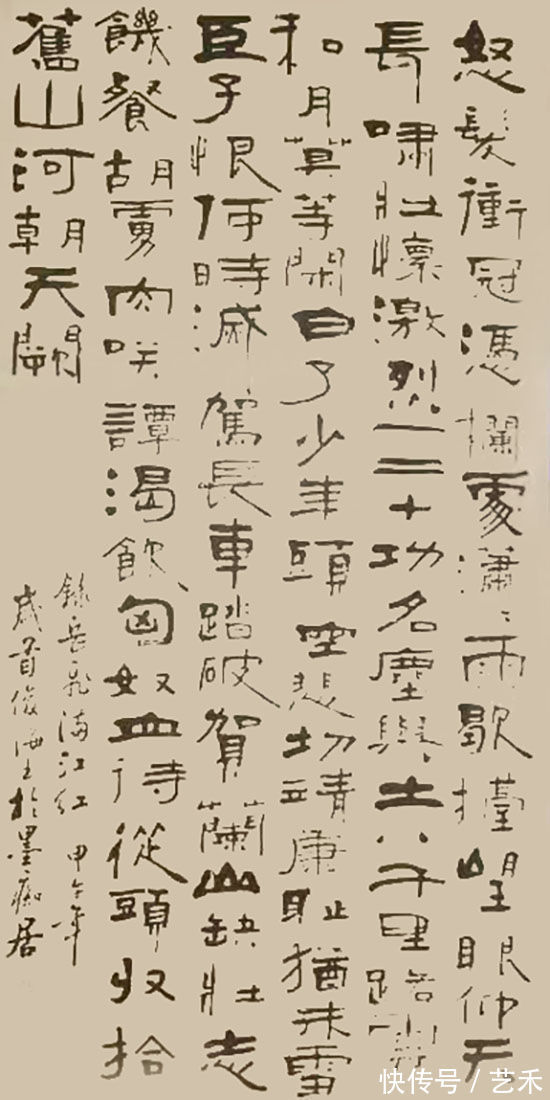 怒髮衝冠憑攔處瀟〻雨歇擡望眼仰天
長嘯壯懷激烈三十功名塵與土八千里路雲
和月莫等閑白了少年頭空悲切靖康恥猶未雪
臣子恨何時滅駕長車踏破賀蘭山缺壯志
饑餐胡虜肉笑譚渴飲匈奴血待從頭收拾
舊山河朝天闕
錄岳飛滿江紅 甲午年
歲首俊海於墨痴居
快传号／艺禾